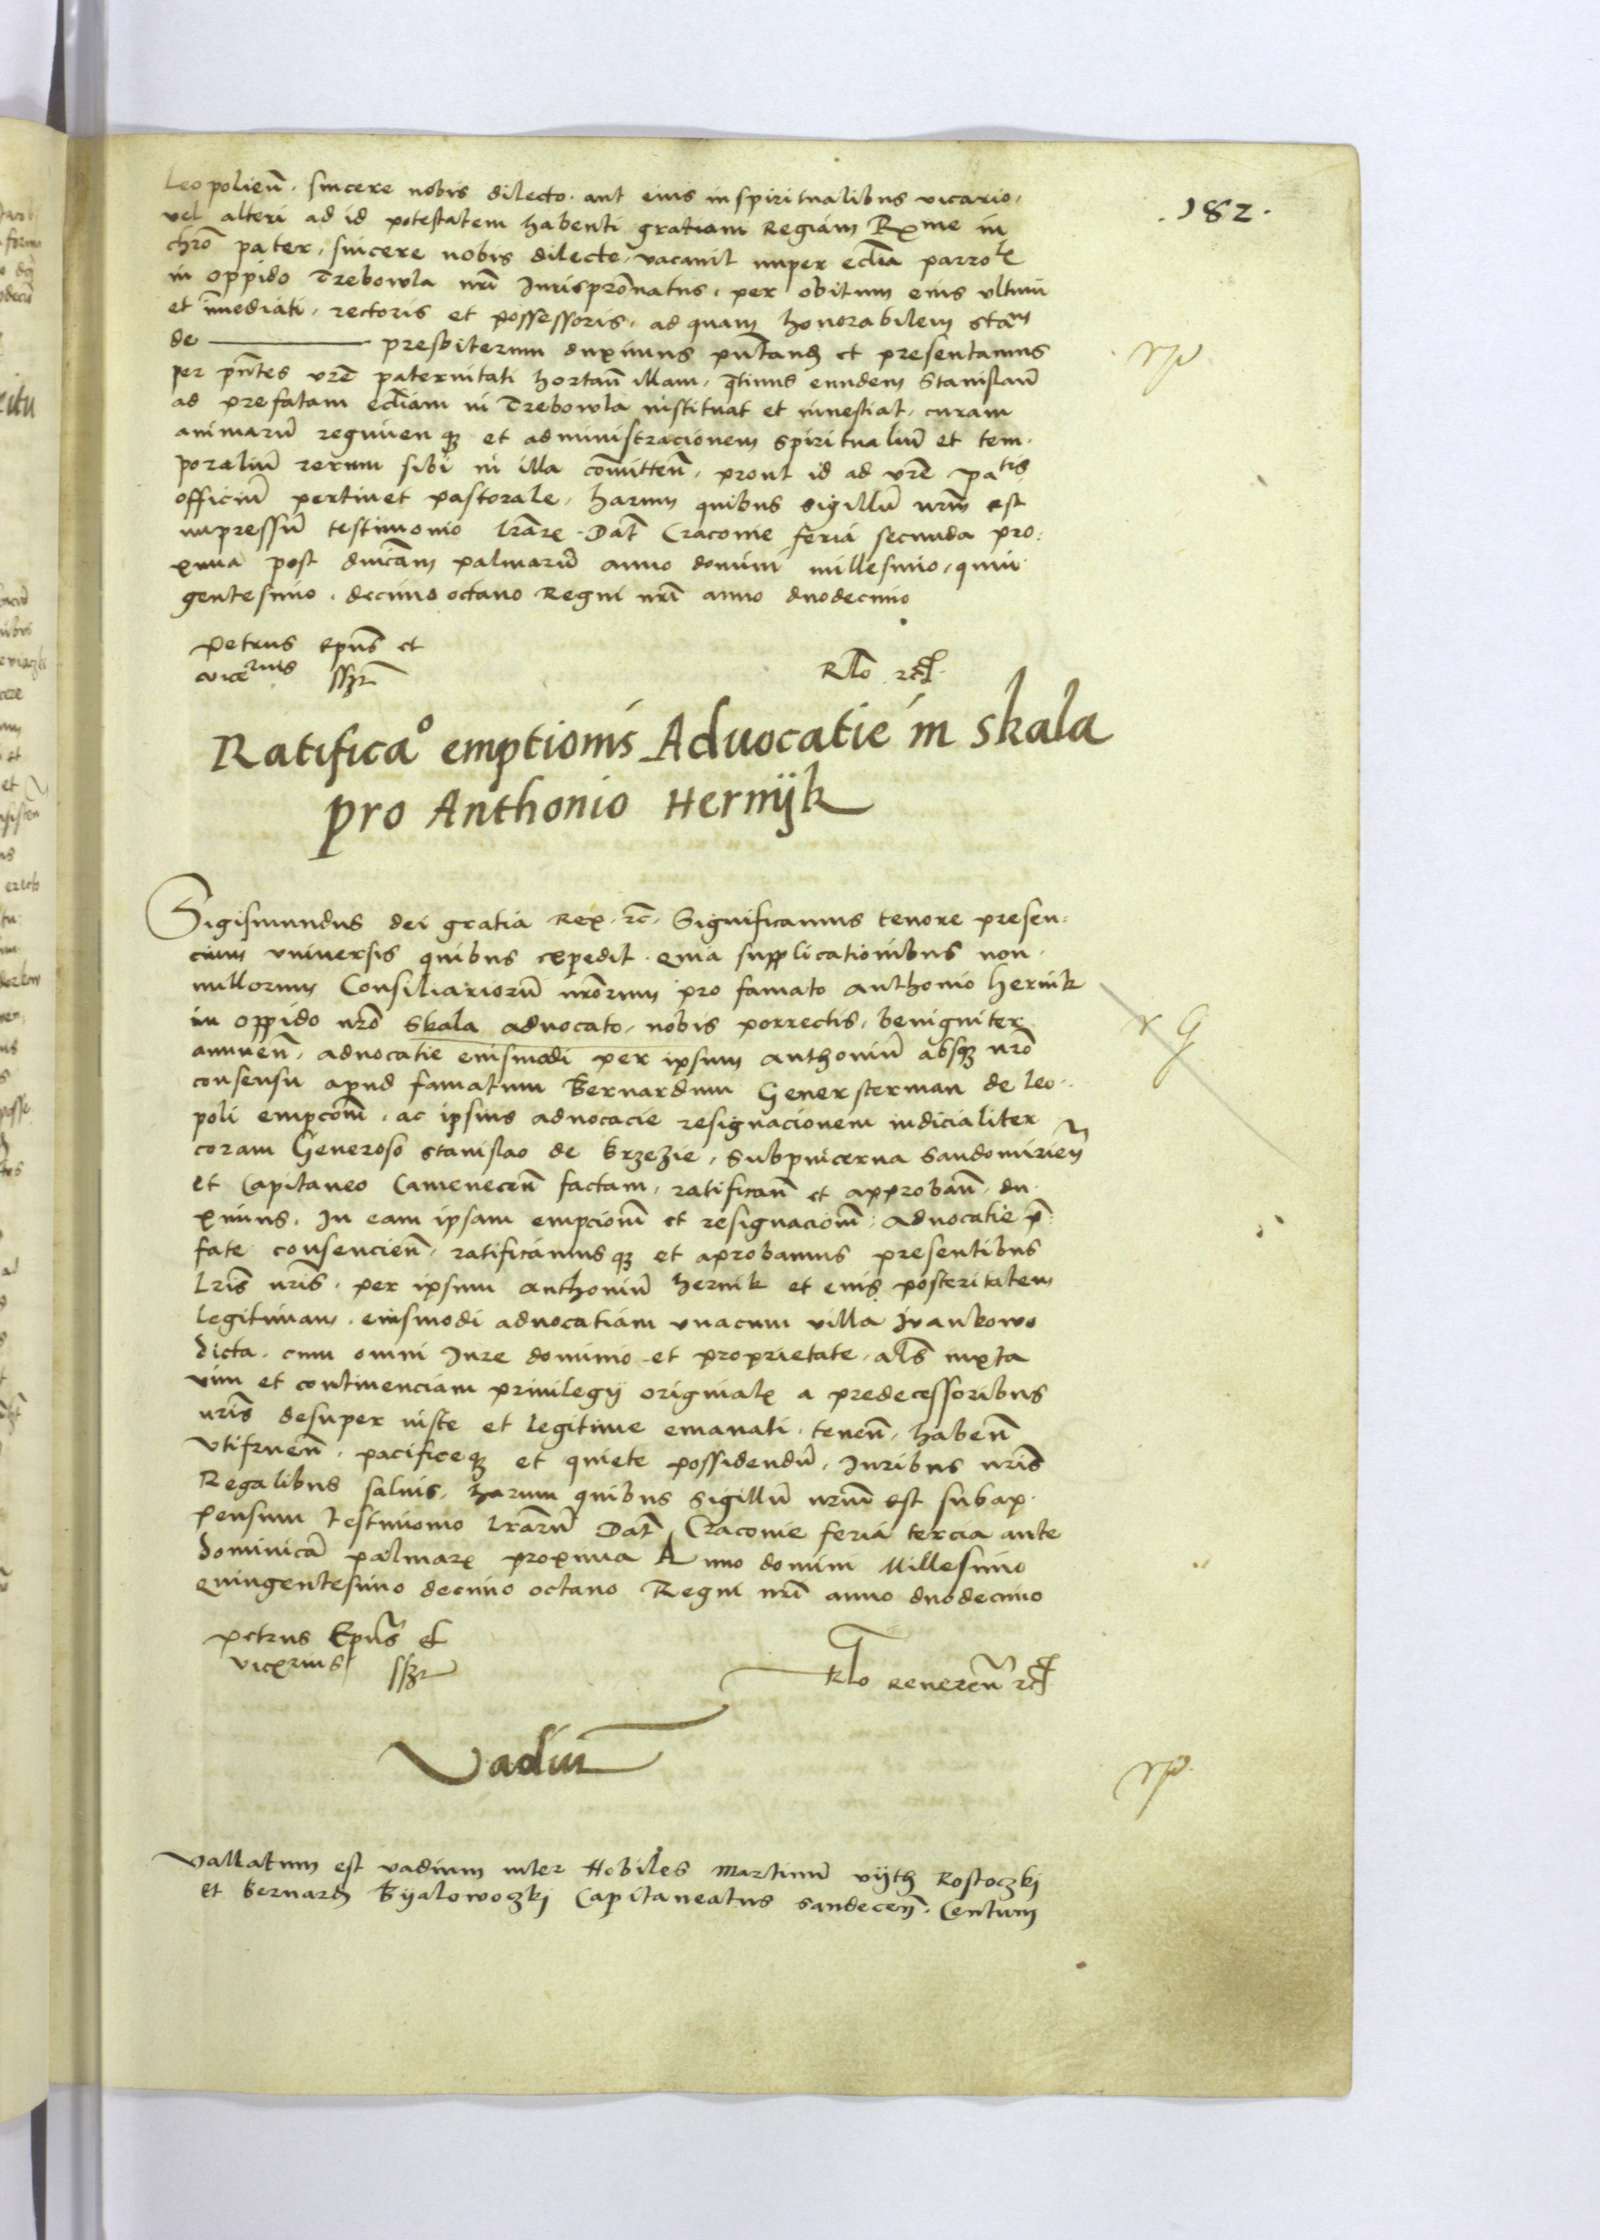 .182.
Leopolien̄. sincere nobis dilecto. aut eius in spiritualibus vicario,
vel alteri ad id potestatem habenti gratiam Regiam Rx̄me in
chrō pater, sincere nobis dilecte, vacauit nuper ecclīa parrol
in oppido Trebowla nr̄i Jurisprōnatus, per obitum eius vltimi
et īmediati, rectoris et possessoris, ad quam honorabilem stām
de ——— presbiterum duximus pn̄tand et presentamus
per pn̄tes vrē paternitati hortan̄ illam, q̄tinus eundem Stanislaū
ad prefatam ecclīam in Trebowla instituat et inuestiat, curam
animarū regimen qȝ et administracionem spiritualiū et tem-
poraliū rerum sibi in illa com̄itten̄, prout id ad vrē patis
officiū pertinet pastorale, harum quibus sigillū nrm̄ est
impressū testimonio lrārꝝ. Dat̄ Cracouie feria secunda pro:
xima post dnīcām palmarū anno domini millesimo, quin-
gentesimo. decimo octauo Regni nr̄i anno duodecimo
Petrus Ep̄us et
vicerius sszt
Rlo̅ rc.
Ratificaᵒ emptionis Aduocatie in Skala
pro Anthonio Hernijk
Sigismundus dei gratia Rex. rc̄. Significamus tenore presen:
cium vniuersis quibus expedit. quia supplicationibus non-
nullorum Consiliariorū nrōrum pro famato Anthonio Hernik
in oppido nrō Skala aduocato, nobis porrectis, benigniter
annuen̄, aduocatie eiusmodi per ipsum anthoniū absqȝ nrō
consensu apud famatum Bernardum Genersterman de leo-
poli empcōm̄, ac ipsius aduocacie resignacionem iudicialiter
coram Generoso stanislao de Brzezie, Subpincerna Sandomirien̄
et Capitaneo Camenecen̄ factam, ratifican̄ et approban̄, du-
ximus. In eam ipsam empcionm̄ et resignacionm̄. aduocatie p̄-
fate consencien̄, ratificamus qȝ et aprobamus presentibus
Lris̄ nris̄, per ipsum anthoniū hernik et eius posteritatem
legitimam. eiusmodi aduocatiam vnacum villa Jvankowo
dicta. cum omni Jure dominio et proprietate, als̄ iuxta
vim et continenciam priuilegij originalꝭ a predecessoribus
nris̄ desuper iuste et legitime emanati, tenen̄, haben̄
Vtifruen̄, pacificeqȝ et quiete possidendū, Juribus nris̄
Regalibus saluis, harum quibus Sigillū nrum̄ est subap-
pensum testimonio lrārū Dat̄ Cracouie feria tercia ante
dominicā palmarꝝ proxima Anno domini Millesimo
quingentesimo decimo octauo Regni nr̄i anno duodecimo
Petrus Ep̄us et
vicerius sszt
Rlo̅ Reueren̄ rc
Vadiū
Vallatum est vadium inter Nobiles Martinū vijth Rostoczkj
et Bernard Bijalowoczkj Capitaneatus Sandecen̄. Centum